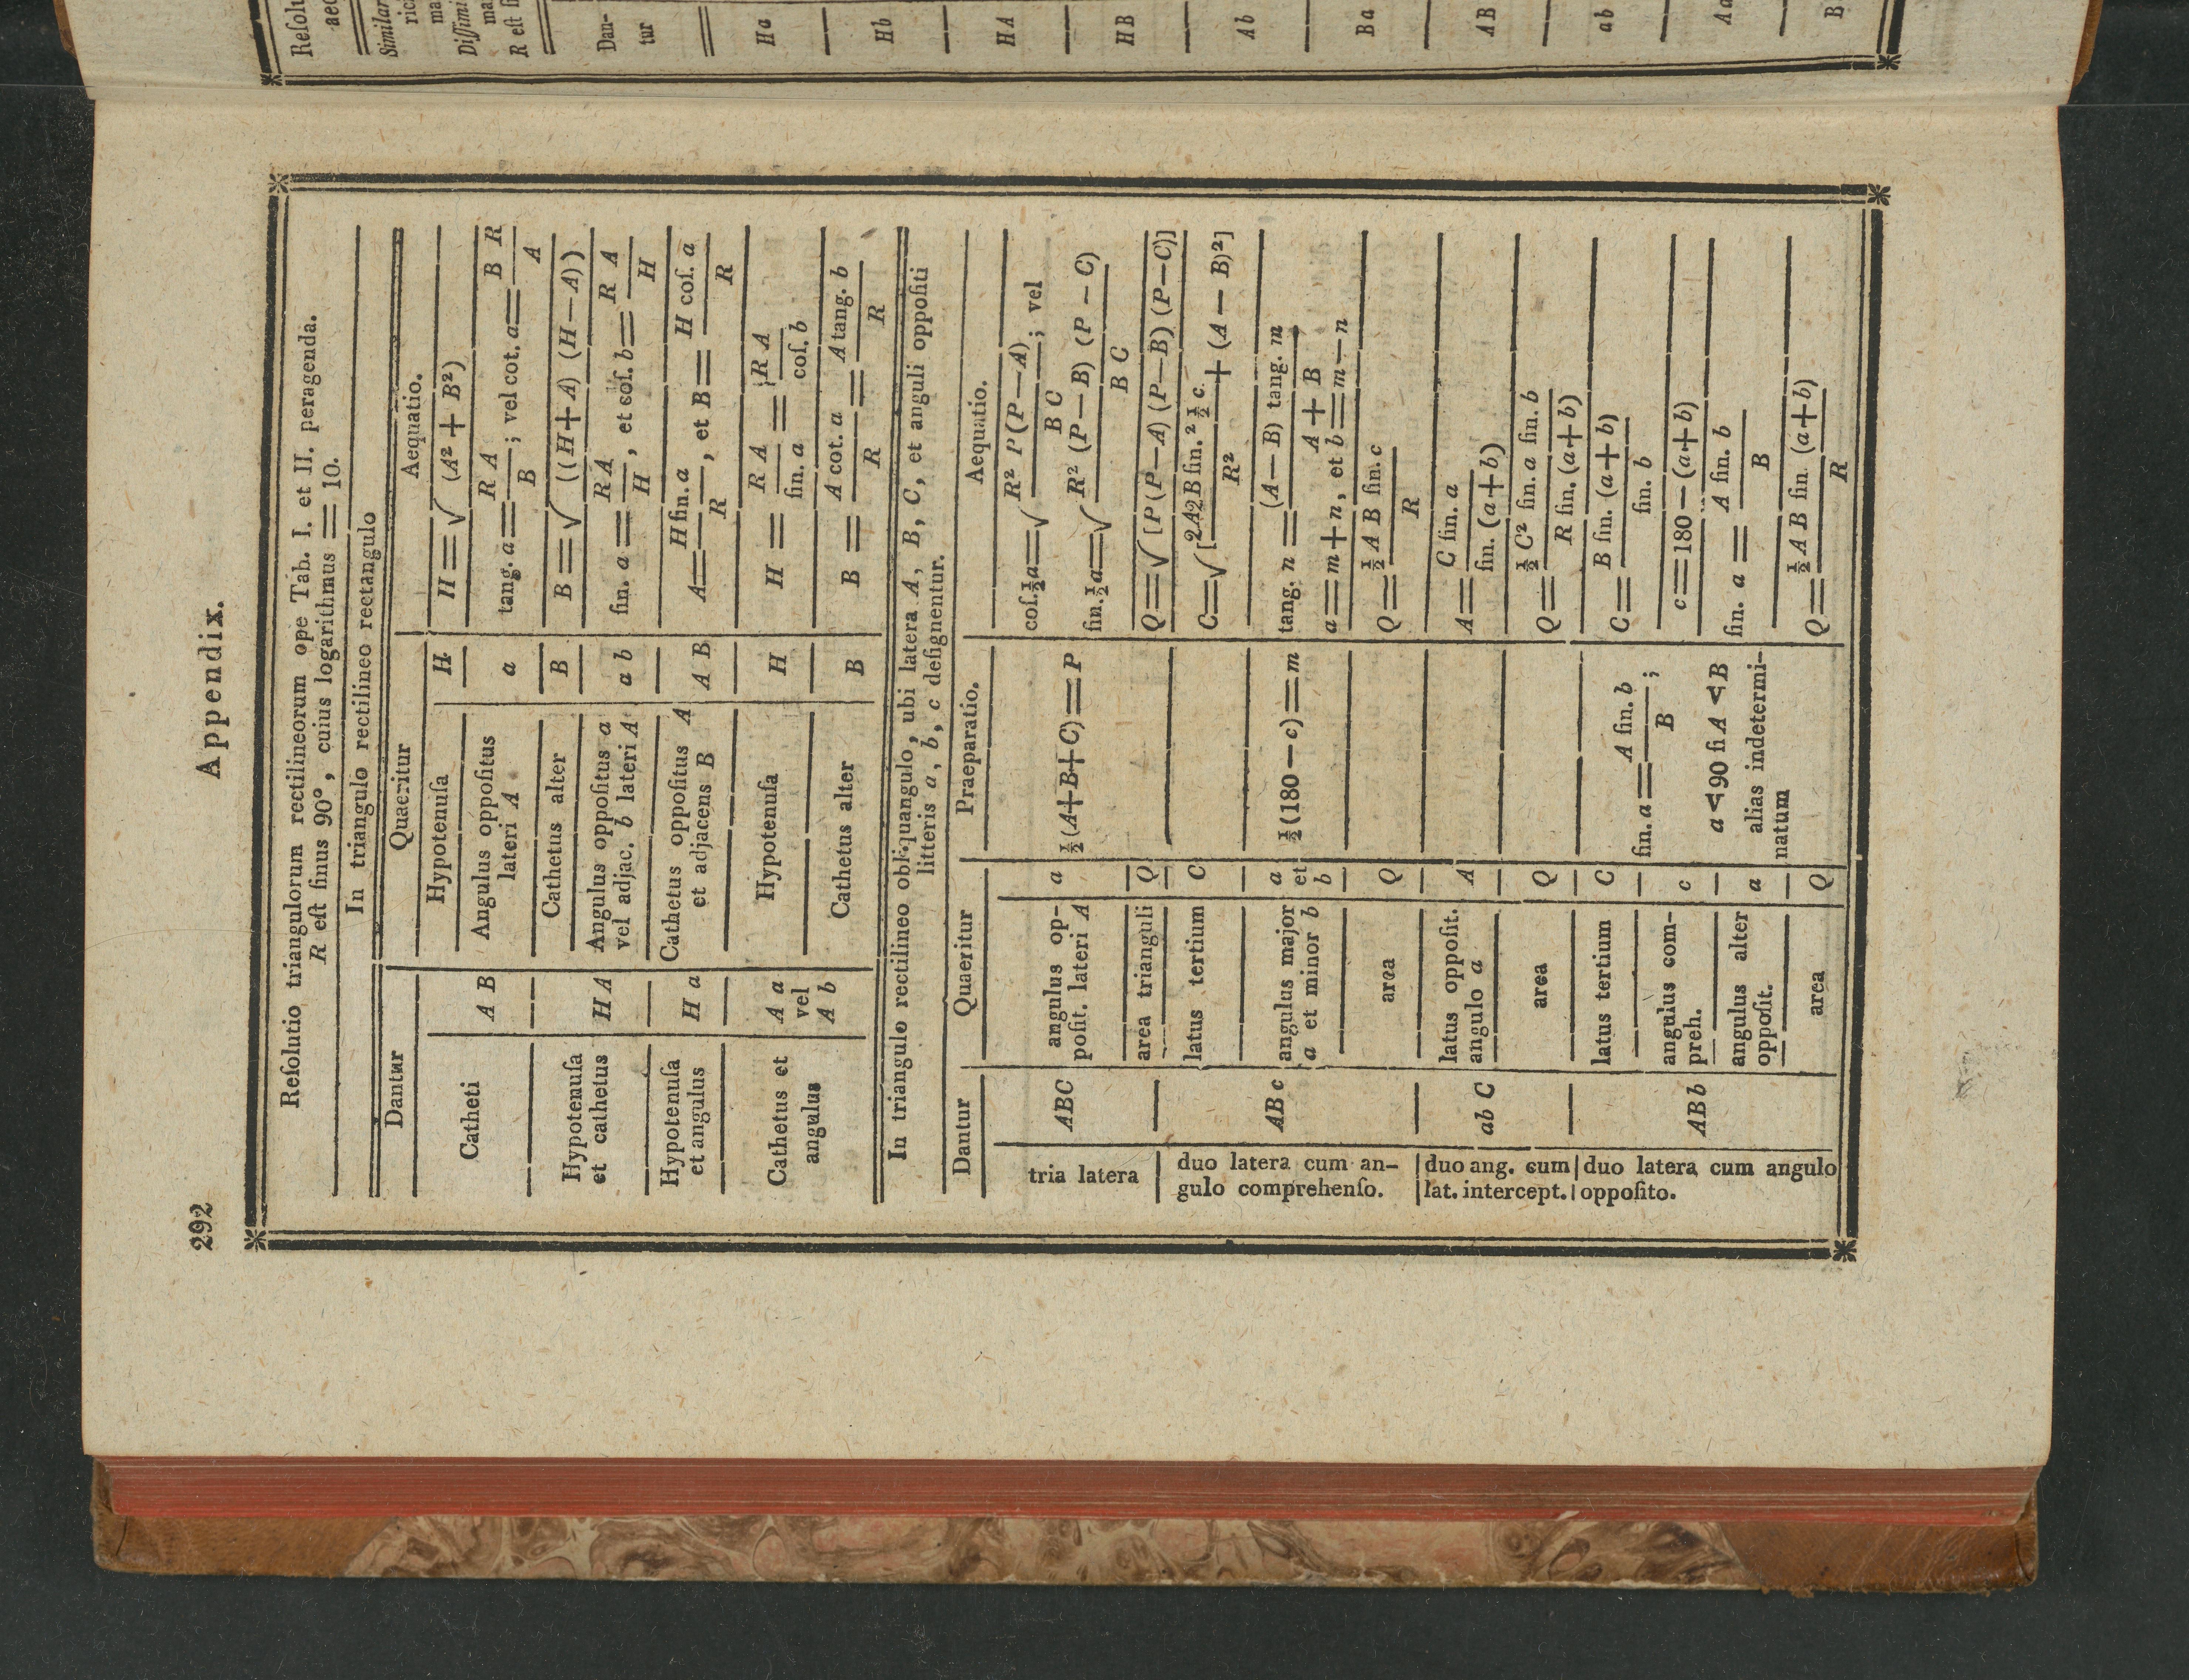 292
Appendix.
Reſolutio triangulorum rectilineorum ope Tab. I. et II. peragenda.
R eſt ſinus 90°, cuius logarithmus = 10.
In triangulo rectilineo rectangulo
Dantur | Quaeritur | Aequatio.
Catheti | A B | Hypotenuſa | H | H = √ (A² + B²)
Angulus oppoſitus lateri A | a | tang. a = R A / B ; vel cot. a = B R / A
Hypotenuſa et cathetus | H A | Cathetus alter | B | B = √ ((H + A) (H — A))
Angulus oppoſitus a vel adjac. b lateri A | a b | ſin. a = R A / H , et coſ. b = R A / H
Hypotenuſa et angulus | H a | Cathetus oppoſitus A et adjacens B | A B | A = H ſin. a / R , et B = H coſ. a / R
Cathetus et angulus | A a vel A b | Hypotenuſa | H | H = R A / ſin. a = R A / coſ. b
Cathetus alter | B | B = A cot. a / R = A tang. b / R
In triangulo rectilineo obliquangulo, ubi latera A, B, C, et anguli oppoſiti
litteris a, b, c deſignentur.
Dantur | Quaeritur | Praeparatio. | Aequatio.
tria latera | ABC | angulus oppoſit. lateri A | a | ½ (A+B+C) = P | coſ. ½ a = √ R² P (P — A) / B C ; vel
ſin. ½ a = √ R² (P — B) (P — C) / B C
area trianguli | Q | Q = √ [P (P—A) (P—B) (P—C)]
duo latera cum angulo comprehenſo. | AB c | latus tertium | C | C = √ [2A2B ſin.² ½ c. / R² + (A — B)²]
angulus major a et minor b | a et b | ½ (180 — c) = m | tang. n = (A — B) tang. m / A + B ,
a = m + n, et b = m — n
area | Q | Q = ½ A B ſin. c / R
duo ang. cum lat. intercept. | ab C | latus oppoſit. angulo a | A | A = C ſin. a / ſin. (a+b)
area | Q | Q = ½ C² ſin. a ſin. b / R ſin. (a+b)
duo latera cum angulo oppoſito. | AB b | latus tertium | C | ſin. a = A ſin. b / B ; | C = B ſin. (a+b) / ſin. b
angulus compreh. | c | a < 90 ſi A < B | c = 180 — (a+b)
angulus alter oppoſit. | a | alias indeterminatum | ſin. a = A ſin. b / B
area | Q | Q = ½ A B ſin. (a+b) / R
Similar
Diſſimi
R eſt
Dan-
tur
H a
H b
H A
H B
A b
B a
A B
a b
A a
B